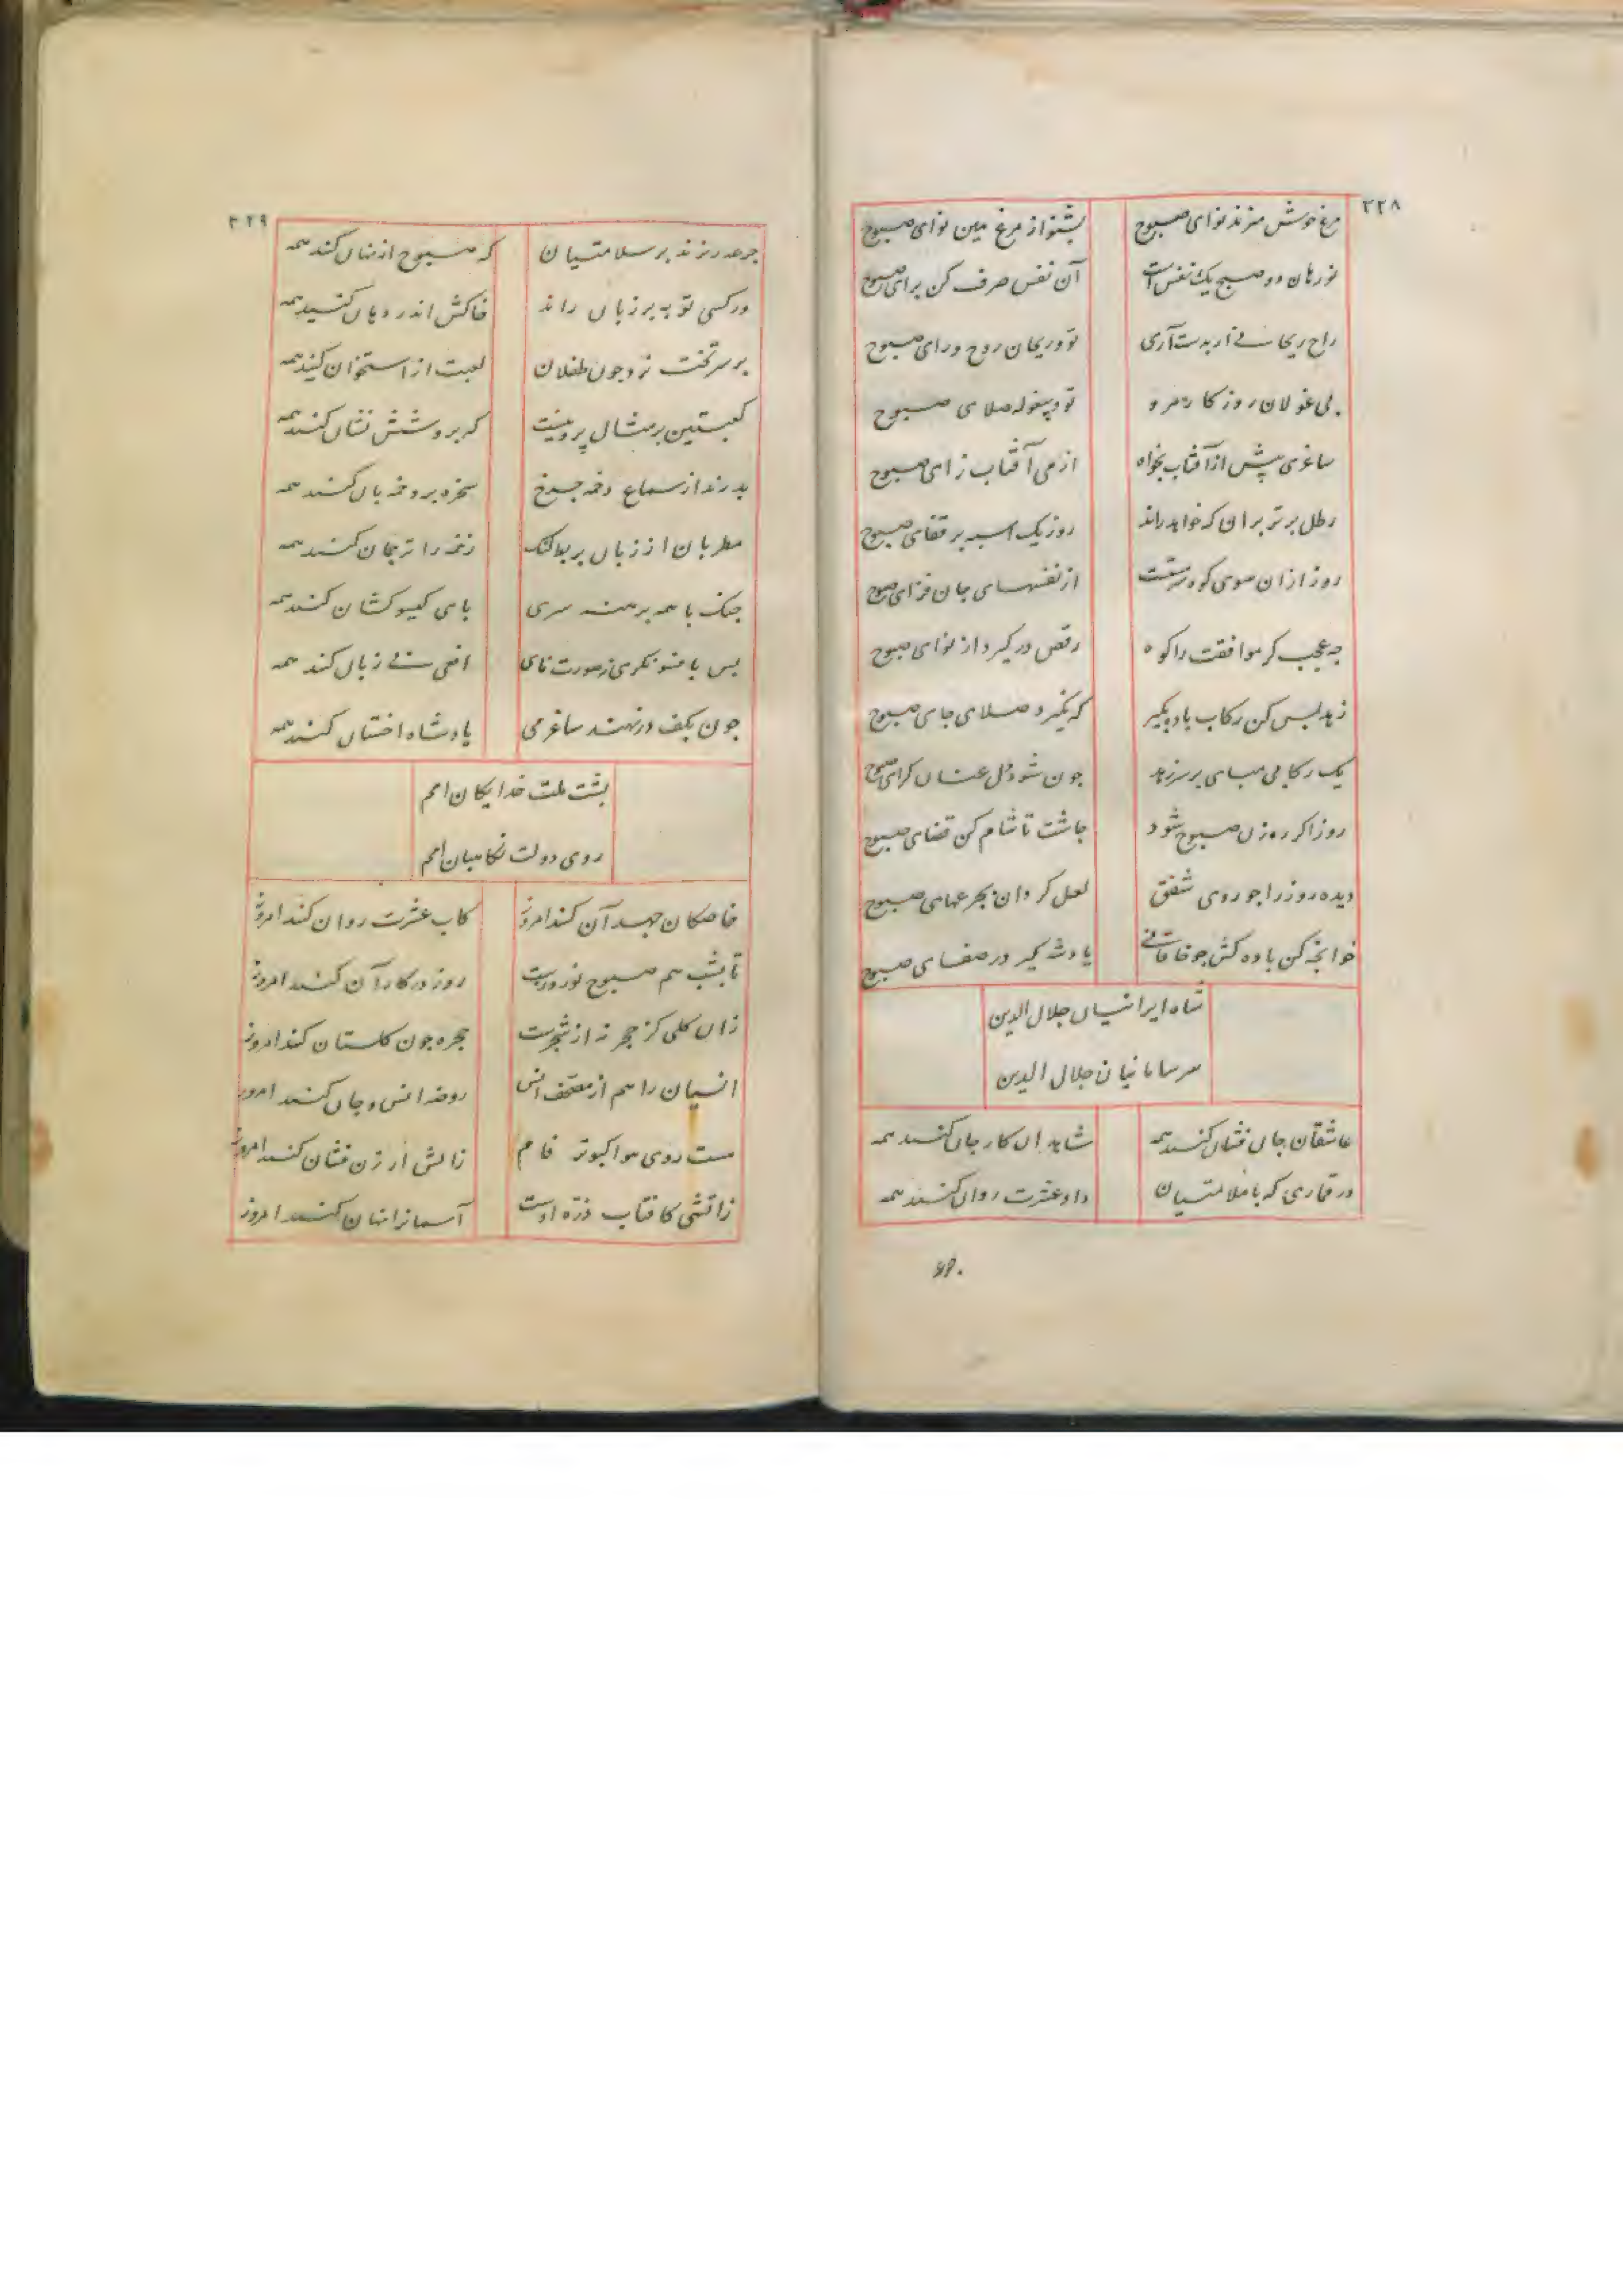 ۲۲۸
مرغ خوش میزند نوای صبوح بشنو از مرغ هین نوای صبوح
نورهان دو صبح یک نفس است آن نفس صرف کن برای صبوح
راح ریحانی ار بدست آری تو و ریحان روح و رای صبوح
پی غولان روزگار مرو تو و پیغوله صلای صبوح
ساغری پیش از آفتاب بخواه از می آفتاب زای صبوح
رطل برتر بران که خواهد راند روز یک اسبه بر قفای صبوح
روز از آن سوی کوه سرمست از نفسهای جان فزای صبوح
چه عجب کر موافقت را کوه رقص درگیرد از نوای صبوح
زهد بس کن رکاب باده بگیر که نگیرد صلای جای صبوح
یک رکابی مپای بر سر زهد جون شود دل عنان کرای صبوح
روز اکر رهزن صبوح شود جاشت تا شام کن قضای صبوح
دیده روز را جو روی شفق لعل کردان بجرعهای صبوح
خوانجه کن باده کش جو خاقانی یاد شه کیر در صفای صبوح
شاه ایرانیان جلال الدین
سر سامانیان جلال الدین
عاشقان جان فشان کنند همه شاهدان کار جان کنند همه
در قماری که با ملامتیان داو عشرت روان کنند همه
۲۲۹
جرعه ریزند بر سلامتیان که صبوح از نهان کنند همه
ور کسی توبه بر زبان راند خاکش اندر دهان کنید همه
بر سر تخت نرد جون طفلان لعبت از استخوان کنید همه
کعبتین بر مثال پروینست که بر و شش نشان کنند همه
بدرند از سماع دخمه جرخ سخره بر دخمه بان کنند همه
مطربان از زبان بربط کنک زخمه را ترجمان کنند همه
جنک با همه برهنه سری پای کیسو کشان کنند همه
بس با فسونکری ز صورت نای افعی بی زبان کنند همه
جون بکف در نهند ساغر می یاد شاه اخستان کنند همه
پشت ملت خدایکان امم
روی دولت نکاهبان امم
خاصکان جهد آن کنند امروز کاب عشرت روان کنند امروز
تا بشب هم صبوح نوروزیست روز در کار آن کنند امروز
زان کلی کز حجر نه از شجرست حجره جون کلستان کنند امروز
انسیان را هم از مصحف انس روضه انس و جان کنند امروز
هست روی هوا کبوتر فام زالش ارزن فشان کنند امروز
زاتشی کافتاب ذره اوست آسمانرا نهان کنند امروز